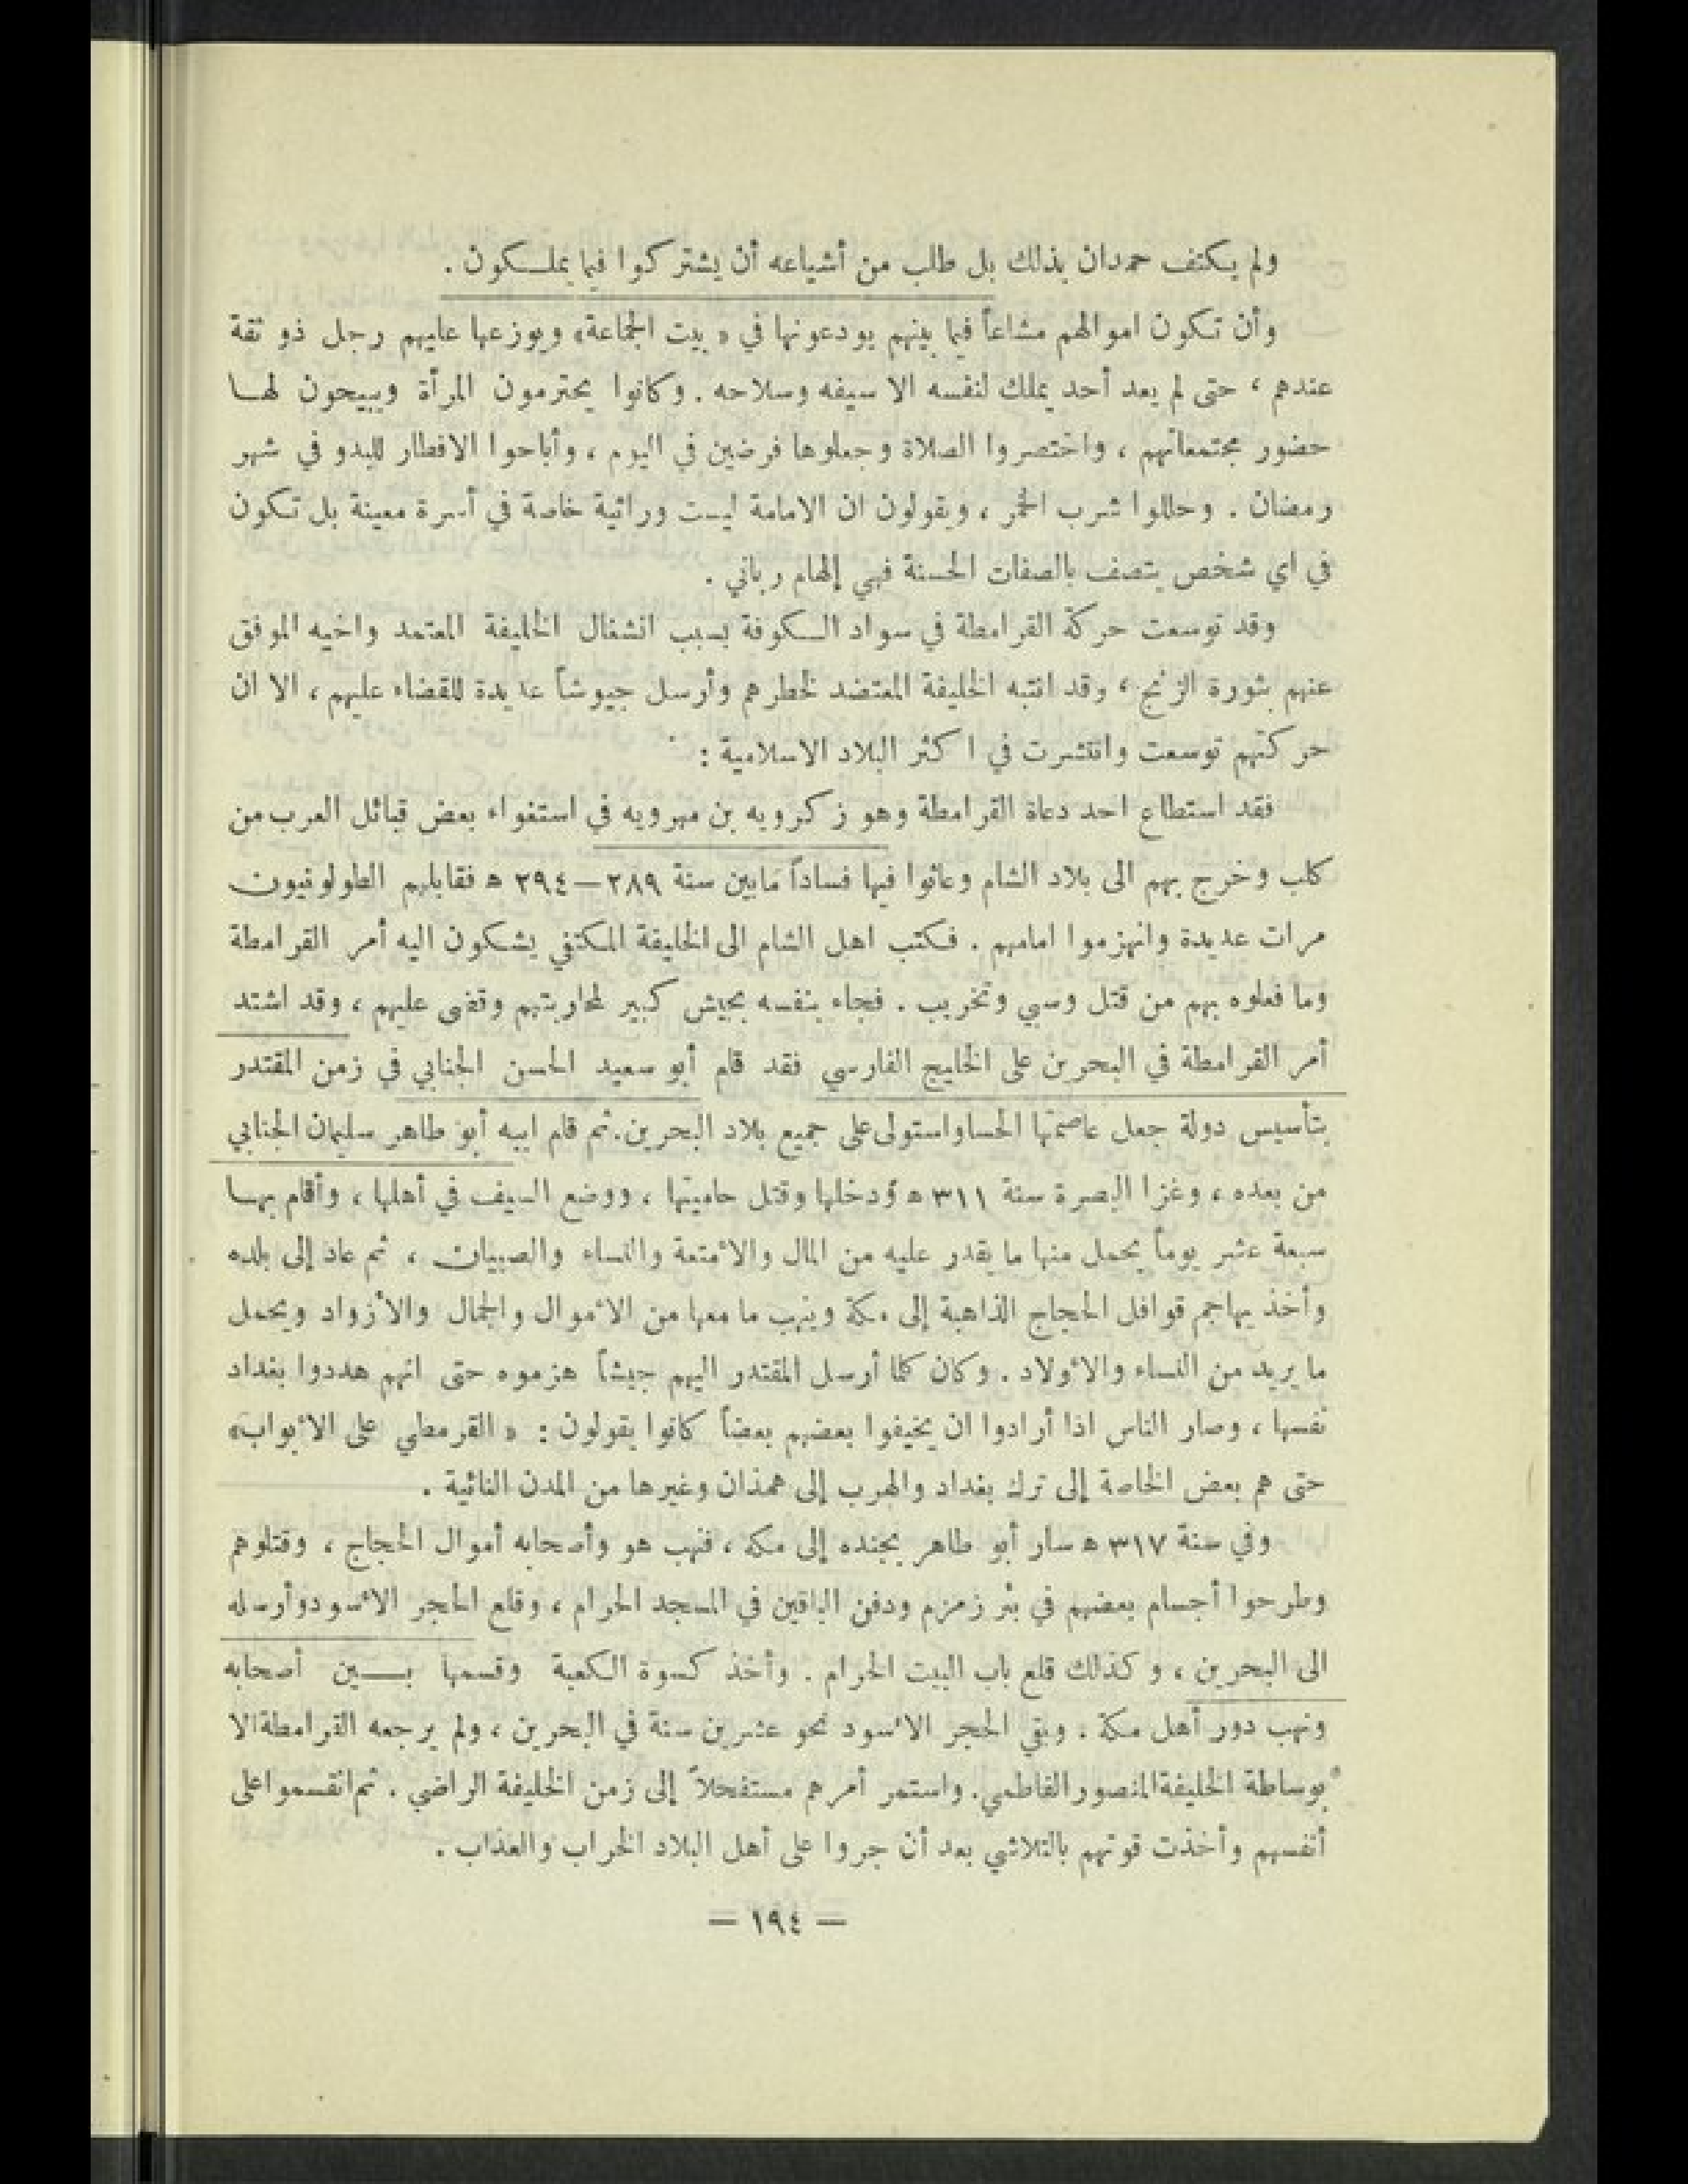 ولم يكتف حمدان بذلك بل طلب من أشياعه أن يشتركوا فيما يملكون .
وأن تكون اموالهم مشاعاً فيما بينهم يودعونها في « بيت الجماعة» ويوزعها عليهم رجل ذو ثقة
عندهم ، حتى لم يعد أحد يملك لنفسه الا سيفه وسلاحه . وكانوا يحترمون المرأة ويبيحون لها
حضور مجتمعاتهم ، واختصروا الصلاة وجعلوها فرضين في اليوم ، وأباحوا الافطار للبدو في شهر
رمضان . وحللوا شرب الخمر ، ويقولون ان الامامة ليست وراثية خاصة في أسرة معينة بل تكون
في اي شخص يتصف بالصفات الحسنة فهي إلهام رباني .
وقد توسعت حركة القرامطة في سواد الكوفة بسبب انشغال الخليفة المعتمد واخيه الموفق
عنهم بثورة الزنج ، وقد انتبه الخليفة المعتضد لخطرهم وأرسل جيوشاً عديدة للقضاء عليهم ، الا ان
حركتهم توسعت وانتشرت في اكثر البلاد الاسلامية :
فقد استطاع احد دعاة القرامطة وهو زكرويه بن مهرويه في استغواء بعض قبائل العرب من
كلب وخرج بهم الى بلاد الشام وعاثوا فيها فساداً مابين سنة ٢٨٩—٢٩٤ ه فقابلهم الطولونيون
مرات عديدة وانهزموا امامهم . فكتب اهل الشام الى الخليفة المكتفي يشكون اليه أمر القرامطة
وما فعلوه بهم من قتل وسبي وتخريب . فجاء بنفسه بجيش كبير لمحاربتهم وقضى عليهم ، وقد اشتد
أمر القرامطة في البحرين على الخليج الفارسي فقد قام أبو سعيد الحسن الجنابي في زمن المقتدر
بتأسيس دولة جعل عاصمتها الحسا واستولى على جميع بلاد البحرين. ثم قام ابيه أبو طاهر سليمان الجنابي
من بعده ، وغزا البصرة سنة ٣١١ ه ودخلها وقتل حاميتها ، ووضع السيف في أهلها ، وأقام بها
سبعة عشر يوماً يحمل منها ما يقدر عليه من المال والأمتعة والنساء والصبيان ، ثم عاد إلى بلده
وأخذ يهاجم قوافل الحجاج الذاهبة إلى مكة وينهب ما معها من الأموال والجمال والأزواد ويحمل
ما يريد من النساء والأولاد . وكان كلما أرسل المقتدر اليهم جيشاً هزموه حتى انهم هددوا بغداد
نفسها ، وصار الناس اذا أرادوا ان يخيفوا بعضهم بعضاً كانوا يقولون : « القرمطي على الأبواب»
حتى هم بعض الخاصة إلى ترك بغداد والهرب إلى همذان وغيرها من المدن النائية .
وفي سنة ٣١٧ ه سار أبو طاهر بجنده إلى مكة ، فنهب هو وأصحابه أموال الحجاج ، وقتلوهم
وطرحوا أجسام بعضهم في بئر زمزم ودفن الباقين في المسجد الحرام ، وقلع الحجر الأسود وأرسله
الى البحرين ، وكذلك قلع باب البيت الحرام . وأخذ كسوة الكعبة وقسمها بين أصحابه
ونهب دور أهل مكة . وبقي الحجر الأسود نحو عشرين سنة في البحرين ، ولم يرجعه القرامطة الا
بوساطة الخليفة المنصور الفاطمي. واستمر أمرهم مستفحلاً إلى زمن الخليفة الراضي . ثم انقسموا على
أنفسهم وأخذت قوتهم بالتلاشي بعد أن جروا على أهل البلاد الخراب والعذاب .
— ١٩٤ —